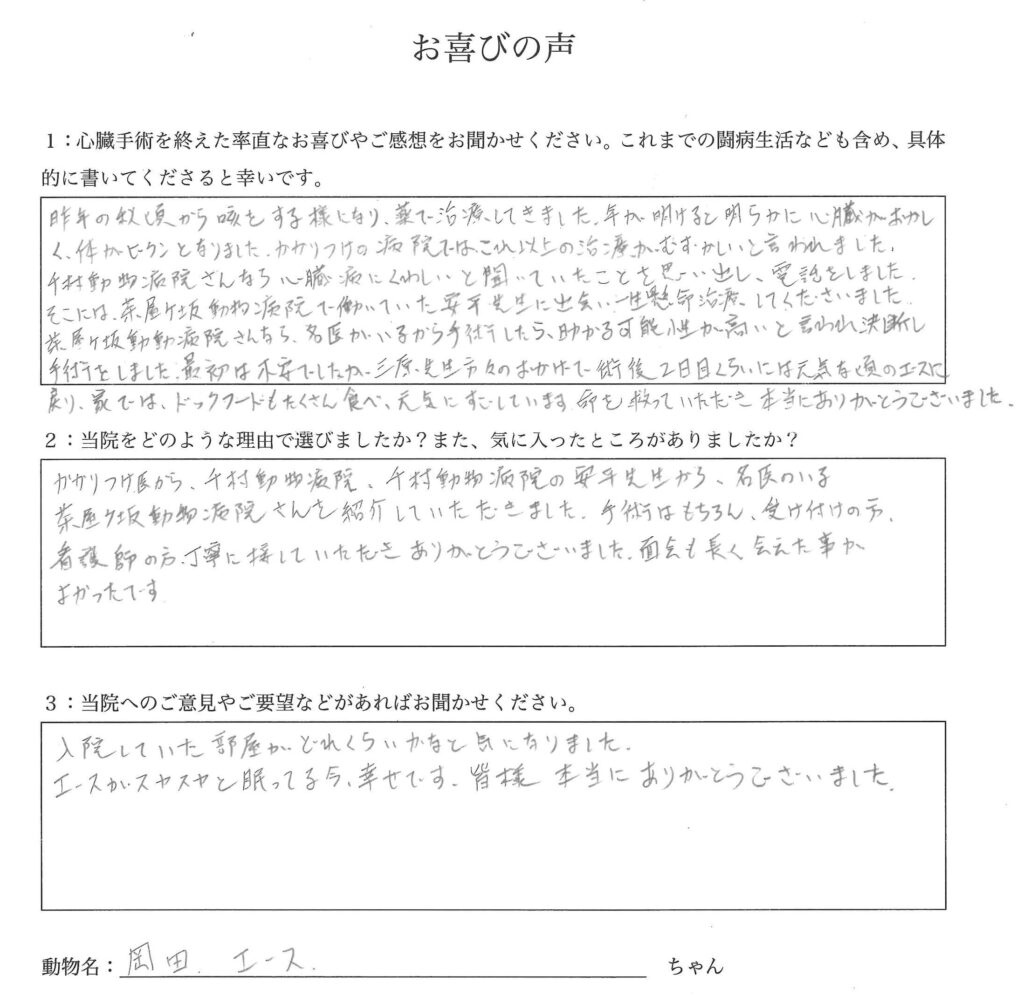 お喜びの声
1：心臓手術を終えた率直なお喜びやご感想をお聞かせください。これまでの闘病生活なども含め、具体
的に書いてくださると幸いです。
昨年の秋頃から咳をする様になり、薬で治療してきました。年が明けると明らかに心臓がおかし
く、体がビクンとなりました。かかりつけの病院ではこれ以上の治療がむずかしいと言われました。
千村動物病院さんなら心臓病にくわしいと聞いていたことを思い出し、電話をしました。
そこには、茶屋ヶ坂動物病院で働いていた安平先生に出会い一生懸命治療してくださいました。
茶屋ヶ坂動動病院さんなら、名医がいるから手術したら、助かる可能性が高いと言われ決断し
手術をしました。最初は不安でしたが、三原先生方々のおかげで術後2日目くらいには元気な頃のエースに
戻り、家では、ドックフードもたくさん食べ、元気にすごしています。命を救っていただき本当にありがとうございました。
2：当院をどのような理由で選びましたか？また、気に入ったところがありましたか？
かかりつけ医から、千村動物病院、千村動物病院の安平先生から、名医のいる
茶屋ヶ坂動物病院さんを紹介していただきました。手術はもちろん、受け付けの方、
看護師の方、丁寧に接していただきありがとうございました。面会も長く会えた事が
よかったです
3：当院へのご意見やご要望などがあればお聞かせください。
入院していた部屋がどれくらいかなと気になりました。
エースがスヤスヤと眠ってる今、幸せです。皆様 本当にありがとうございました。
動物名：岡田 エース. ちゃん